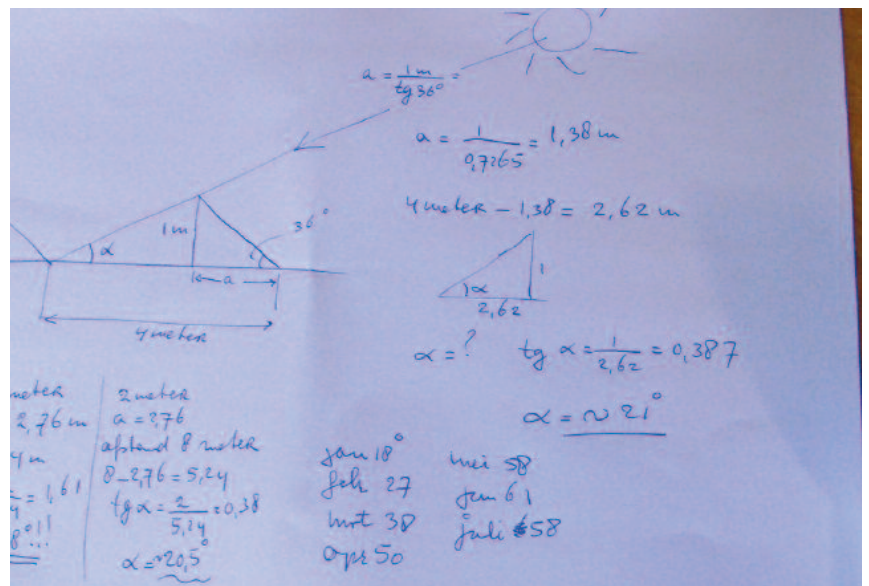 a = 1m / tg 36° =
a = 1 / 0,7265 = 1,38 m
4 meter - 1,38 = 2,62 m
1m
36°
α
a
4 meter
1
α
2,62
α = ? tg α = 1 / 2,62 = 0,387
α = ~ 21°
meter
2,76 m
4m
= 1,61
8°!!
2 meter
a = 2,76
afstand 8 meter
8 - 2,76 = 5,24
tg α = 2 / 5,24 = 0,38
α = ~20,5°
jan 18°
feb 27
mrt 38
apr 50
mei 58
jun 61
juli 58